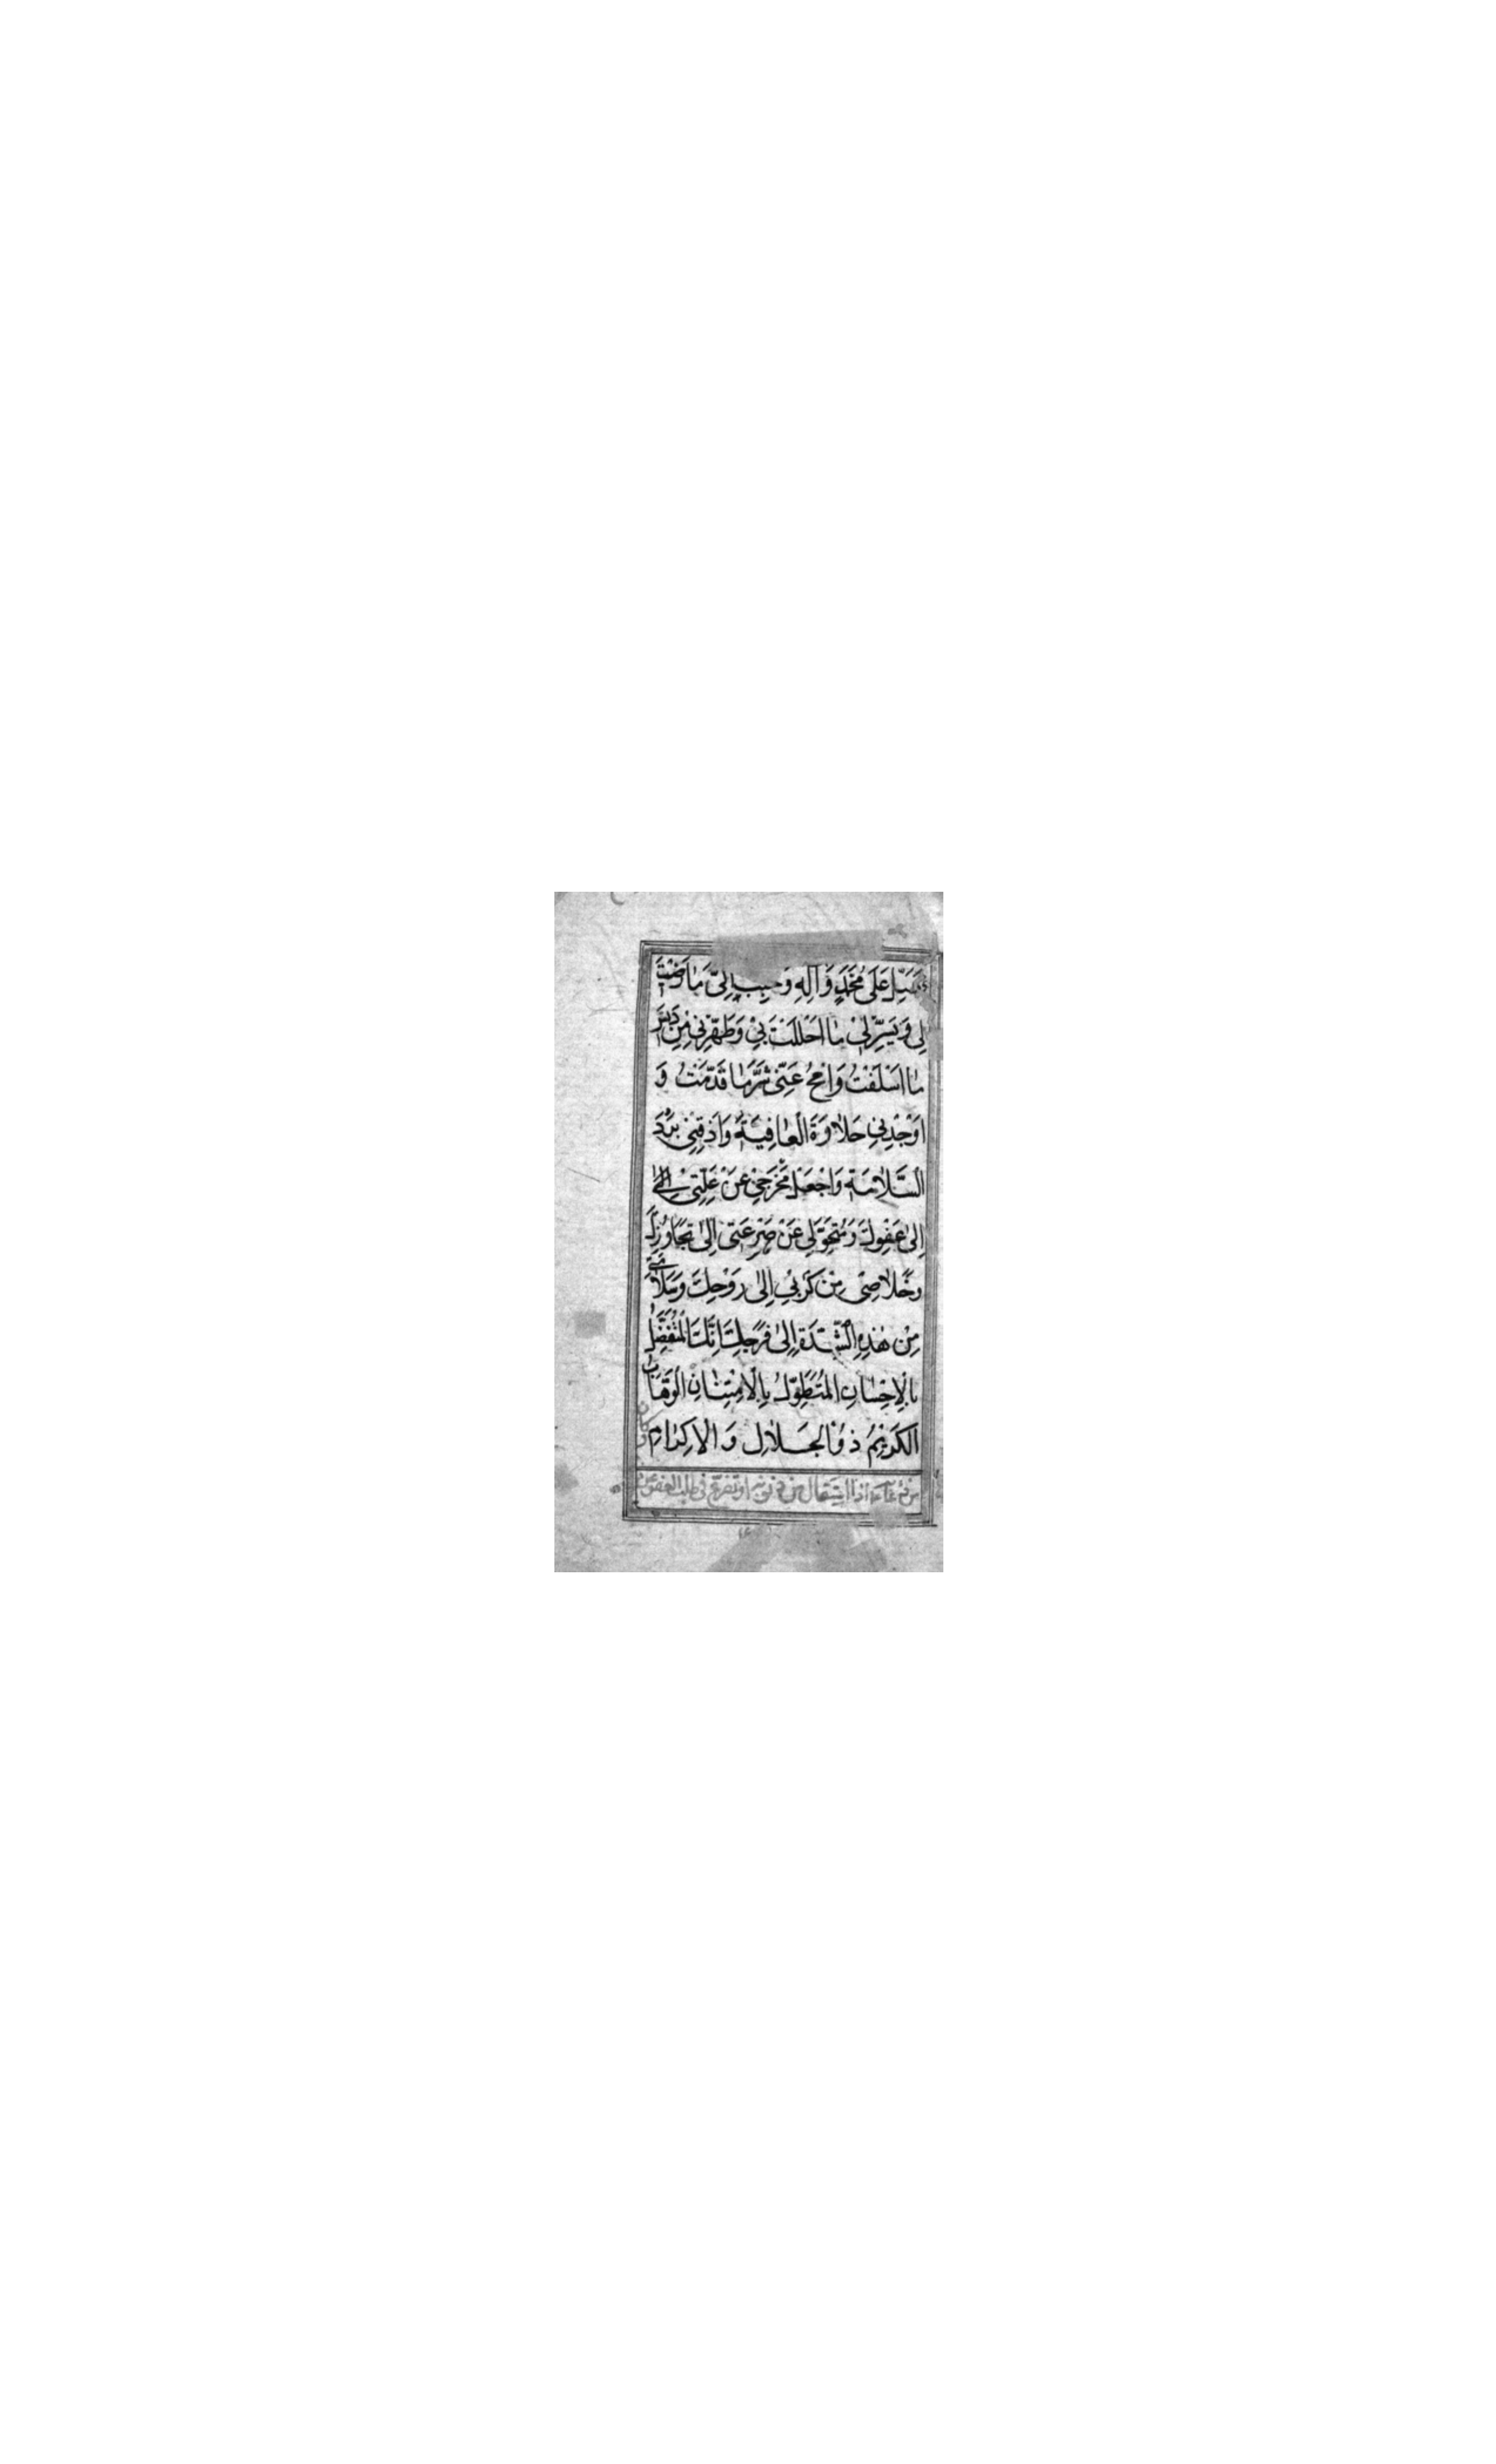 فَصَلِّ عَلَى مُحَمَّدٍ وَآلِهِ وَحَبِّبْ اِلَىَّ مَا رَضِيتَ
لِى وَ يَسِّرْ لِىْ مَا اَحْلَلْتَ بِىْ وَطَهِّرْنِى مِنْ دَنَسِ
مَا اَسْلَفْتُ وَامْحُ عَنِّى شَرَّ مَا قَدَّمْتُ وَ
اَوْجِدْنِى حَلَاوَةَ الْعَافِيَةِ وَاَذِقْنِىْ بَرْدَ
السَّلَامَةِ وَاجْعَلْ مَخْرَجِىْ عَنْ عِلَّتِىْ اِلٰى
اِلىٰ عَفْوِكَ وَ مُتَحَوَّلِى عَنْ صَرْعَتِى اِلىٰ تَجَاوُزِكَ
وَخَلَاصِى مِنْ كَرْبِىْ اِلىٰ رَوْحِكَ وَسَلَامَتِى
مِنْ هٰذِهِ الشِّدَّةِ اِلىٰ فَرَجِكَ اِنَّكَ الْمُتَفَضِّلُ
بِالْاِحْسَانِ الْمُتَطَوِّلُ بِالْاِمْتِنَانِ الْوَهَّابُ
الْكَرِيْمُ ذُوالْجَلَالِ وَ الْاِكْرَامِ وكان
من دعائه اذا استقال من ذنوبه او تضرع فى طلب العفو عن